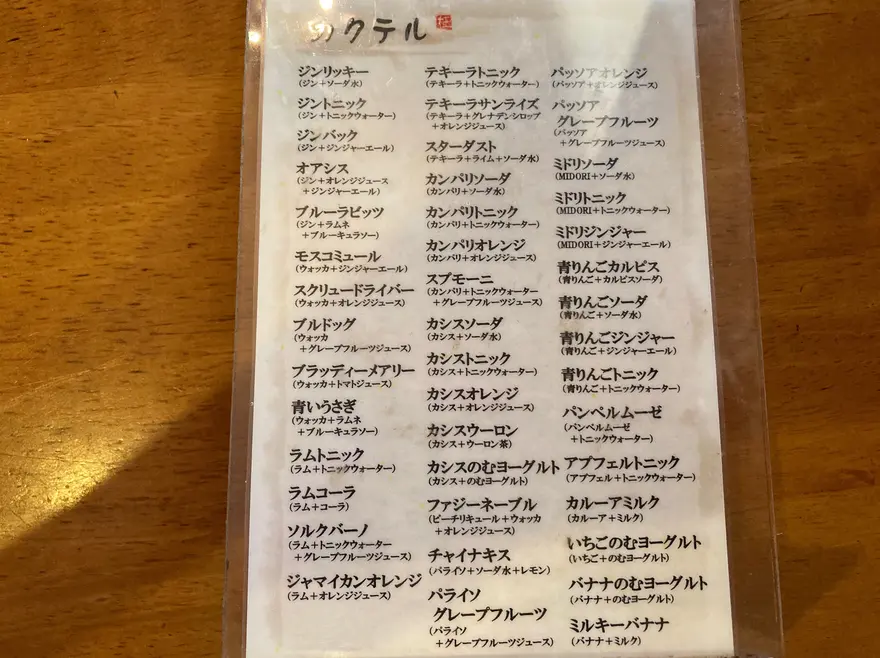 カクテル
ジンリッキー
(ジン+ソーダ水)
ジントニック
(ジン+トニックウォーター)
ジンバック
(ジン+ジンジャーエール)
オアシス
(ジン+オレンジジュース
+ジンジャーエール)
ブルーラビッツ
(ジン+ラムネ
+ブルーキュラソー)
モスコミュール
(ウォッカ+ジンジャーエール)
スクリュードライバー
(ウォッカ+オレンジジュース)
ブルドッグ
(ウォッカ
+グレープフルーツジュース)
ブラッディーメアリー
(ウォッカ+トマトジュース)
青いうさぎ
(ウォッカ+ラムネ
+ブルーキュラソー)
ラムトニック
(ラム+トニックウォーター)
ラムコーラ
(ラム+コーラ)
ソルクバーノ
(ラム+トニックウォーター
+グレープフルーツジュース)
ジャマイカンオレンジ
(ラム+オレンジジュース)
テキーラトニック
(テキーラ+トニックウォーター)
テキーラサンライズ
(テキーラ+グレナデンシロップ
+オレンジジュース)
スターダスト
(テキーラ+ライム+ソーダ水)
カンパリソーダ
(カンパリ+ソーダ水)
カンパリトニック
(カンパリ+トニックウォーター)
カンパリオレンジ
(カンパリ+オレンジジュース)
スプモーニ
(カンパリ+トニックウォーター
+グレープフルーツジュース)
カシスソーダ
(カシス+ソーダ水)
カシストニック
(カシス+トニックウォーター)
カシスオレンジ
(カシス+オレンジジュース)
カシスウーロン
(カシス+ウーロン茶)
カシスのむヨーグルト
(カシス+のむヨーグルト)
ファジーネーブル
(ピーチリキュール+ウォッカ
+オレンジジュース)
チャイナキス
(パライソ+ソーダ水+レモン)
パライソ
グレープフルーツ
(パライソ
+グレープフルーツジュース)
パッソアオレンジ
(パッソア+オレンジジュース)
パッソア
グレープフルーツ
(パッソア
+グレープフルーツジュース)
ミドリソーダ
(MIDORI+ソーダ水)
ミドリトニック
(MIDORI+トニックウォーター)
ミドリジンジャー
(MIDORI+ジンジャーエール)
青りんごカルピス
(青りんご+カルピスソーダ)
青りんごソーダ
(青りんご+ソーダ水)
青りんごジンジャー
(青りんご+ジンジャーエール)
青りんごトニック
(青りんご+トニックウォーター)
パンペルムーゼ
(パンペルムーゼ
+トニックウォーター)
アプフェルトニック
(アプフェル+トニックウォーター)
カルーアミルク
(カルーア+ミルク)
いちごのむヨーグルト
(いちご+のむヨーグルト)
バナナのむヨーグルト
(バナナ+のむヨーグルト)
ミルキーバナナ
(バナナ+ミルク)